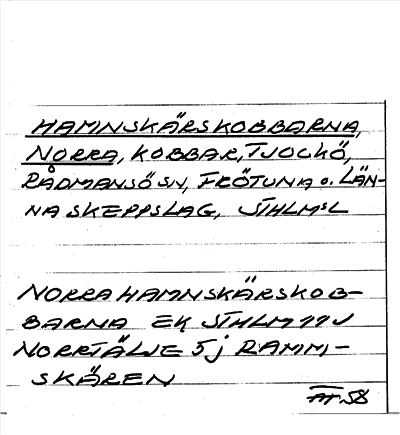 HAMNSKÄRSKOBBARNA,
NORRA, KOBBAR, TJOCKÖ,
RÅDMANSÖ SN, FRÖTUNA o. LÄN-
NA SKEPPSLAG, STHLMSL
NORRA HAMNSKÄRSKOB-
BARNA EK STHLM 99 J
NORRTÄLJE 5j RAMM-
SKÄREN
58